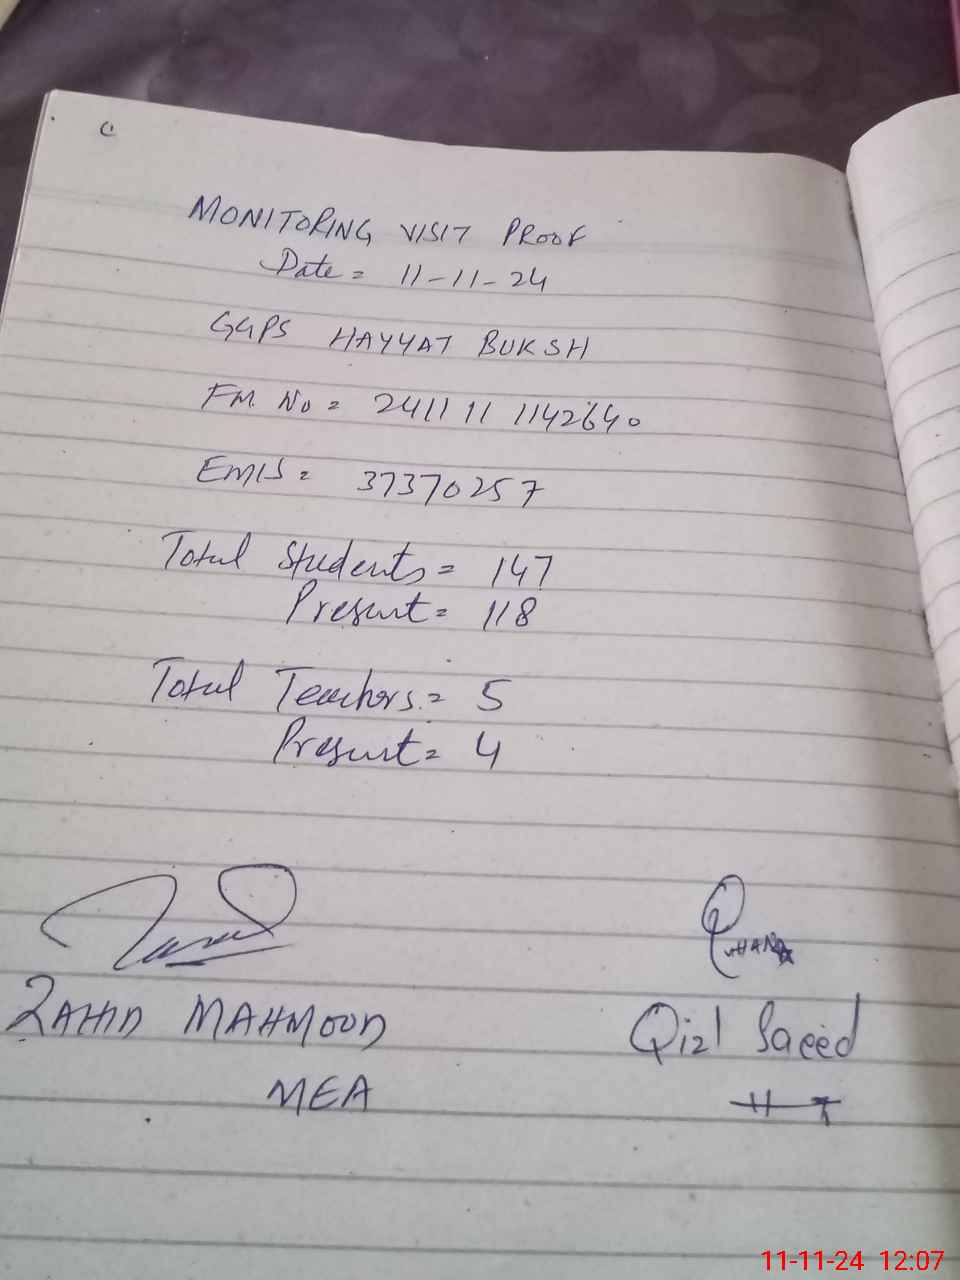 MONITORING VISIT PROOF
Date = 11-11-24
GGPS HAYYAT BUKSH
FM. No = 2411 11 1142640
EMIS = 37370257
Total Students = 147
Present = 118
Total Teachers = 5
Present = 4
ZAHID MAHMOOD
Qizl Saeed
MEA
HT
11-11-24 12:07